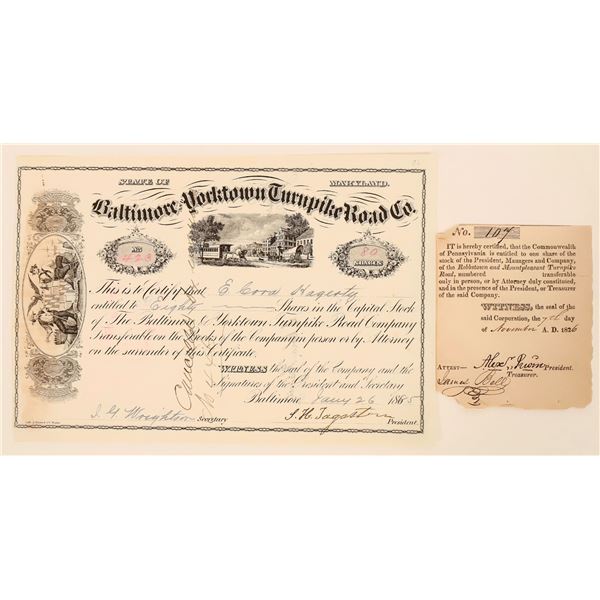 STATE OF MARYLAND.
Baltimore & Yorktown Turnpike Road Co.
No 423
80 SHARES
This is to Certify that E. Coon Hagerty
entitled to Eighty Shares in the Capital Stock
of The Baltimore & Yorktown Turnpike Road Company
Transferable on the Books of the Company in person or by Attorney
on the surrender of this Certificate.
WITNESS the Seal of the Company and the
Signatures of the President and Secretary
Baltimore Jany 26 1865
Secretary
President
No. 107
IT is hereby certified, that the Commonwealth
of Pennsylvania is entitled to one share of the
stock of the President, Managers and Company,
of the Robbstown and Mountpleasant Turnpike
Road, numbered transferable
only in person, or by Attorney duly constituted,
and in the presence of the President, or Treasurer
of the said Company.
WITNESS, the seal of the
said Corporation, the 7th day
of November A. D. 1826
ATTEST— Alexr. Plumer President.
James Bell Treasurer.